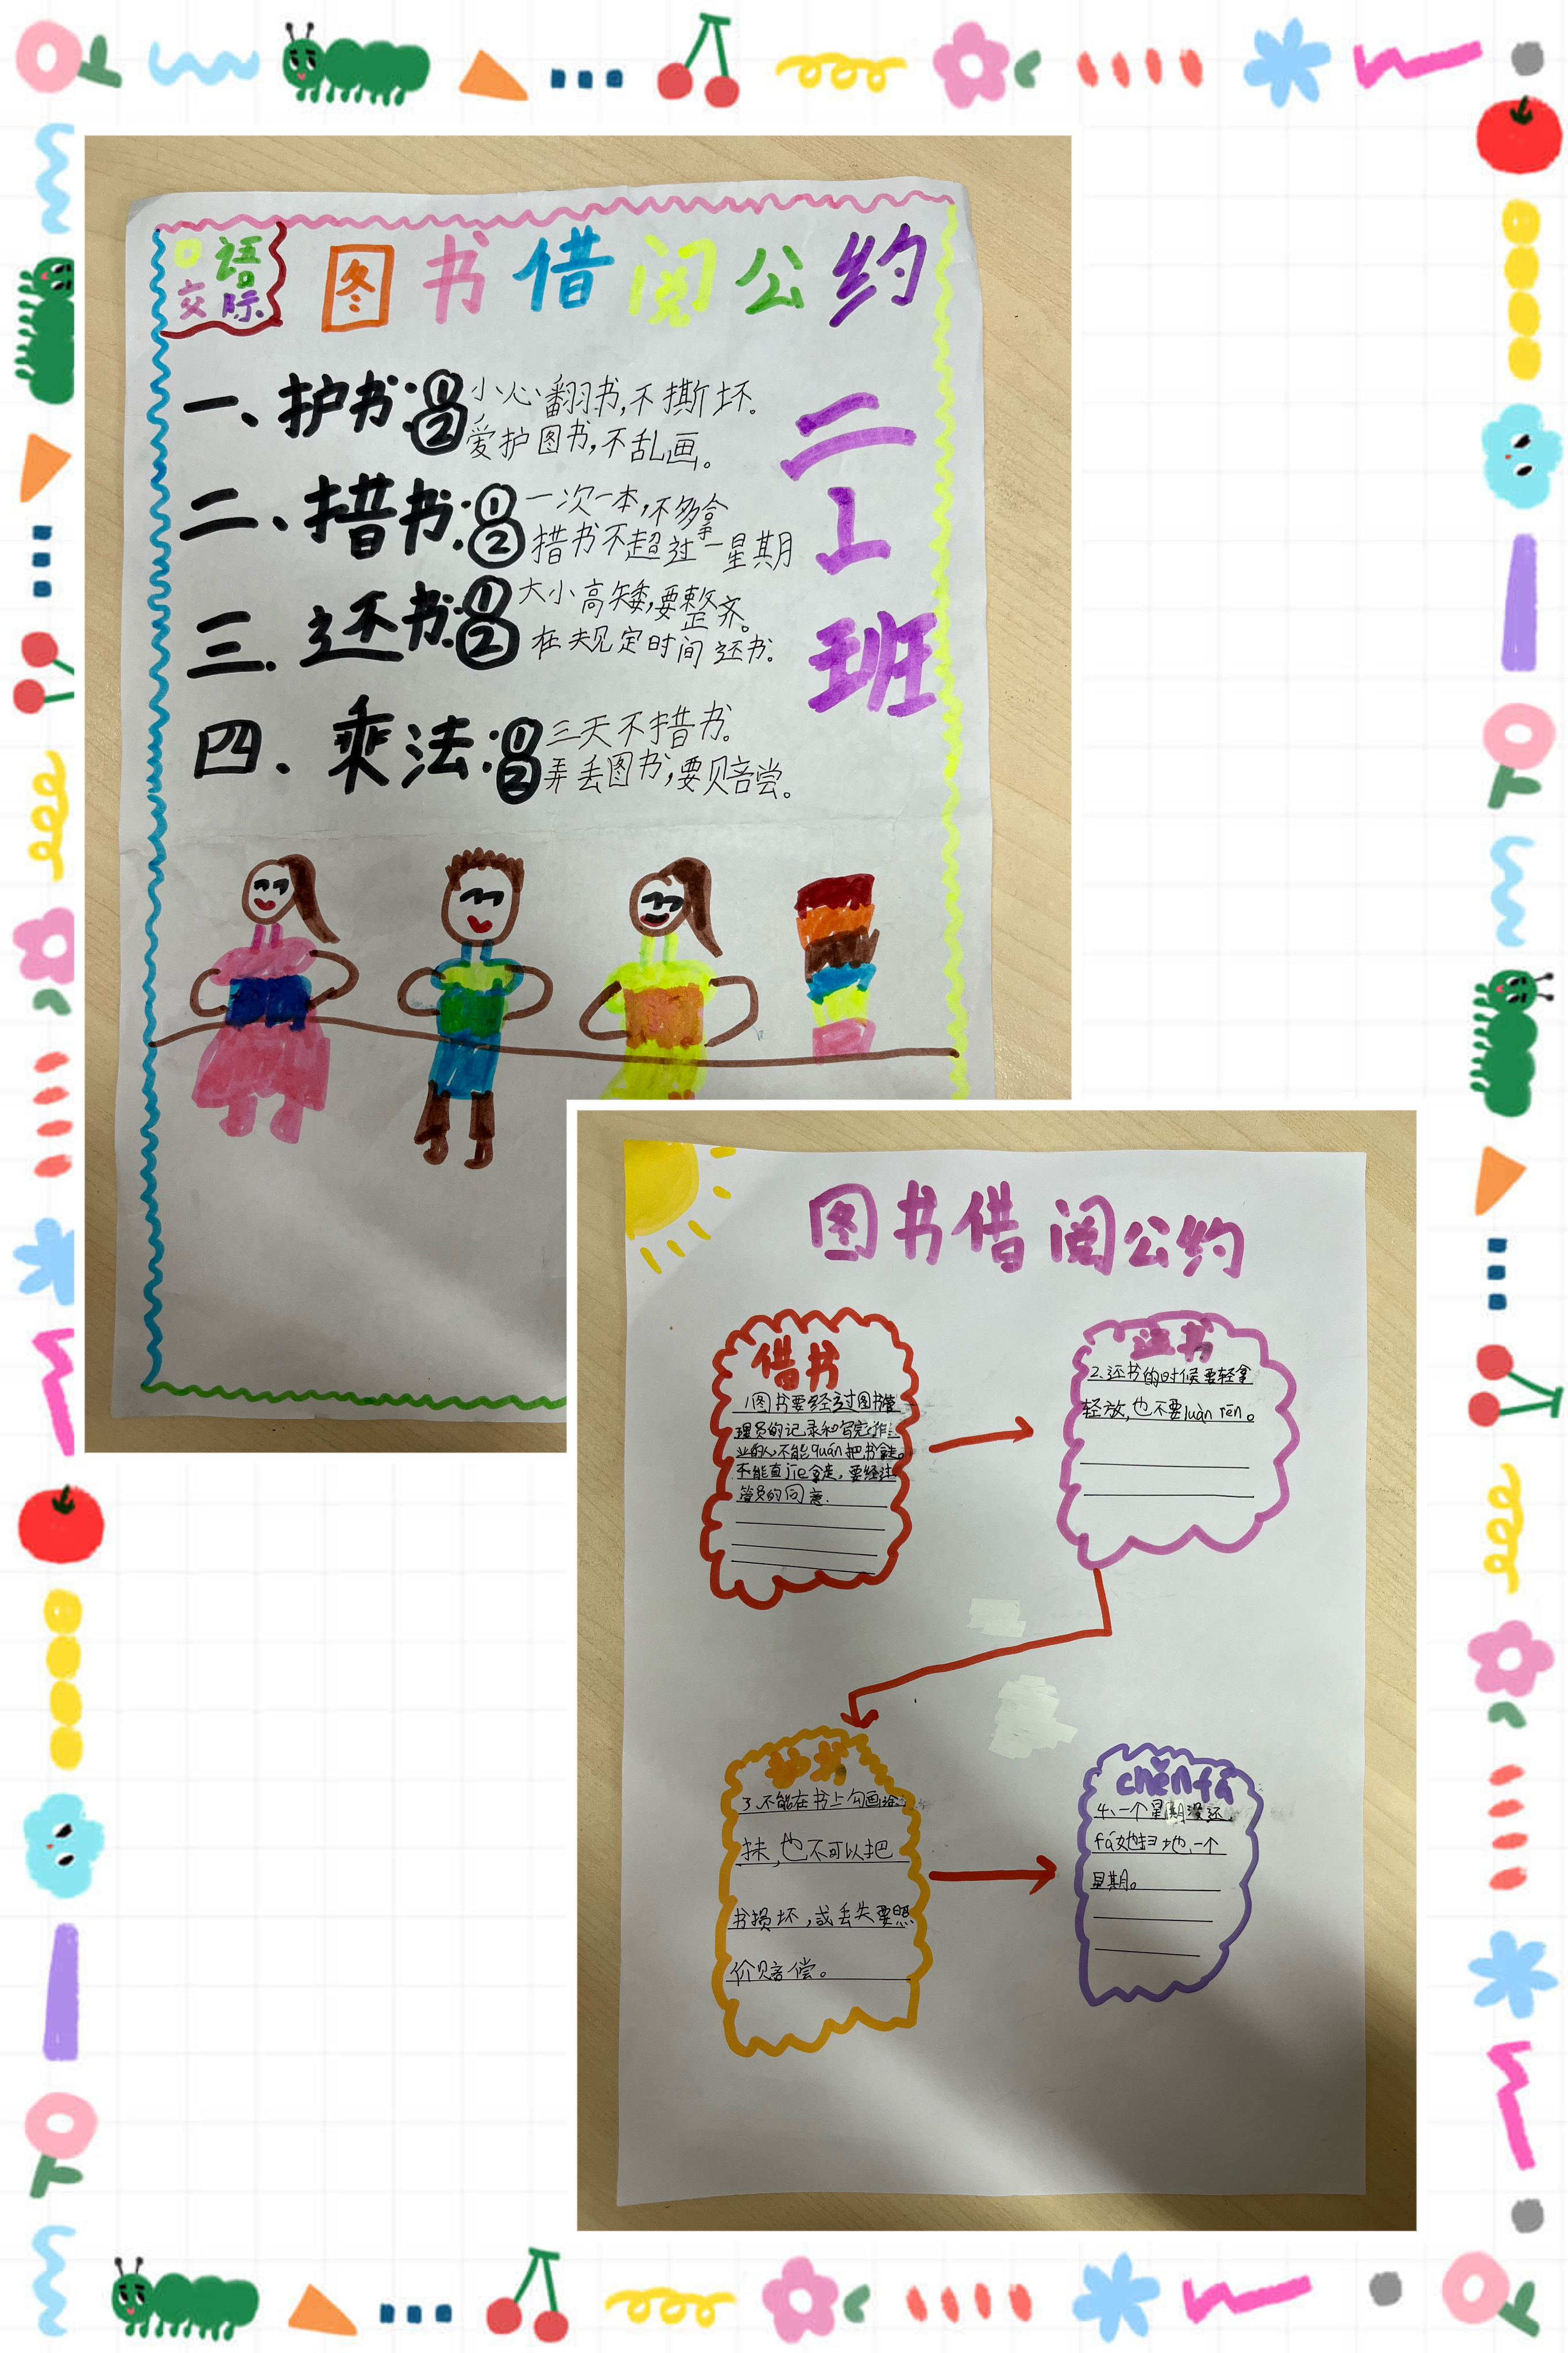 口语
交际
图书借阅公约
二1班
一、护书:①小心翻书,不撕坏。
②爱护图书,不乱画。
二、措书:①一次一本,不多拿
②措书不超过一星期
三.还书:①大小高矮,要整齐。
②在夫见定时间还书.
四.乘法:①三天不措书。
②弄丢图书,要赔尝。
图书借阅公约
借书
1图书要经过图书管
理员的记录和写完作
业的人不能quán把书拿走。
不能直jiē拿走,要经过
管员的同意.
还书
2.还书的时候要轻拿
轻放,也不要luàn rēn。
护书
3.不能在书上勾画涂
抹,也不可以把
书损坏,或丢失要照
价赔偿。
chěnfá
4.一个星期没还,
fá她扫地,一个
星期。